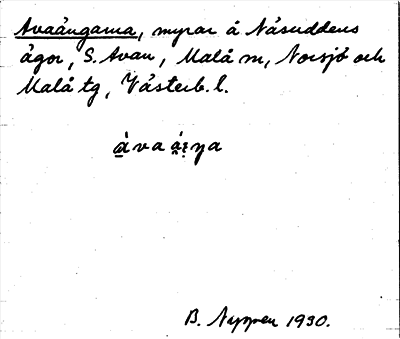 Avaångarna, myrar å Näsuddens
ägor, S. Avan, Malå sn, Norsjö och
Malå tg, Västerb. l.
B. Nyppen 1930.